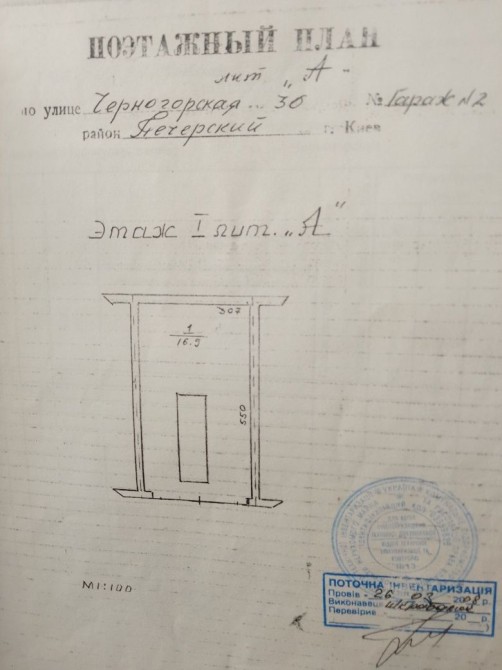 ПОЭТАЖНЫЙ ПЛАН
лит "А"
по улице Черногорская 3б № Гараж N2
район Печерский г. Киев
Этаж I лит. "А"
1
16.9
5.50
М 1:100
ПОТОЧНА ІНВЕНТАРИЗАЦІЯ
Провів 26 03 2008 р.
Виконавець
Перевірив 20 р.